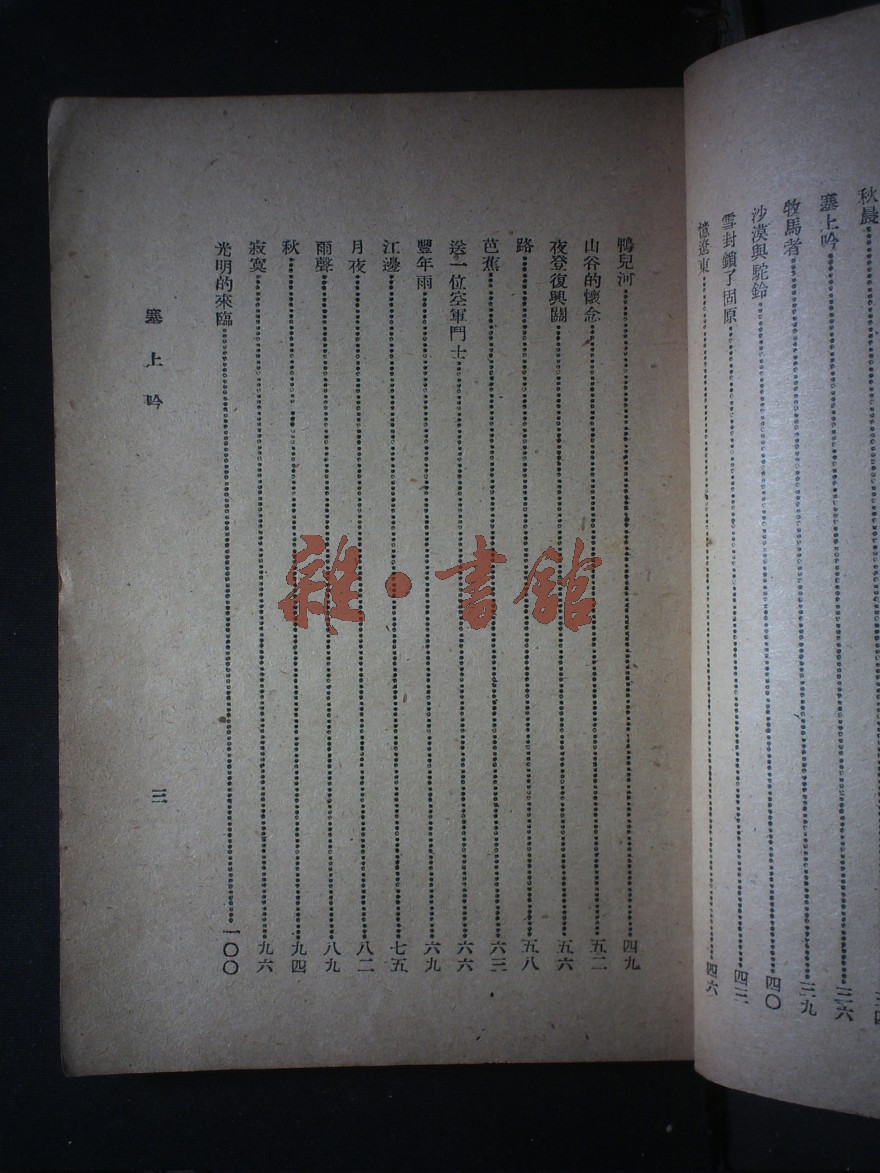 秋晨
塞上吟……三六
牧馬者……三九
沙漠與駝鈴……四〇
雪封鎖了固原……四三
憶遼東……四六
鴨兒河……四九
山谷的懷念……五二
夜登復興關……五六
路……五八
芭蕉……六三
送一位空軍鬥士……六六
豐年雨……六九
江邊……七五
月夜……八二
雨聲……八九
秋……九四
寂寞……九六
光明的來臨……一〇〇
塞上吟
三
雜·書館